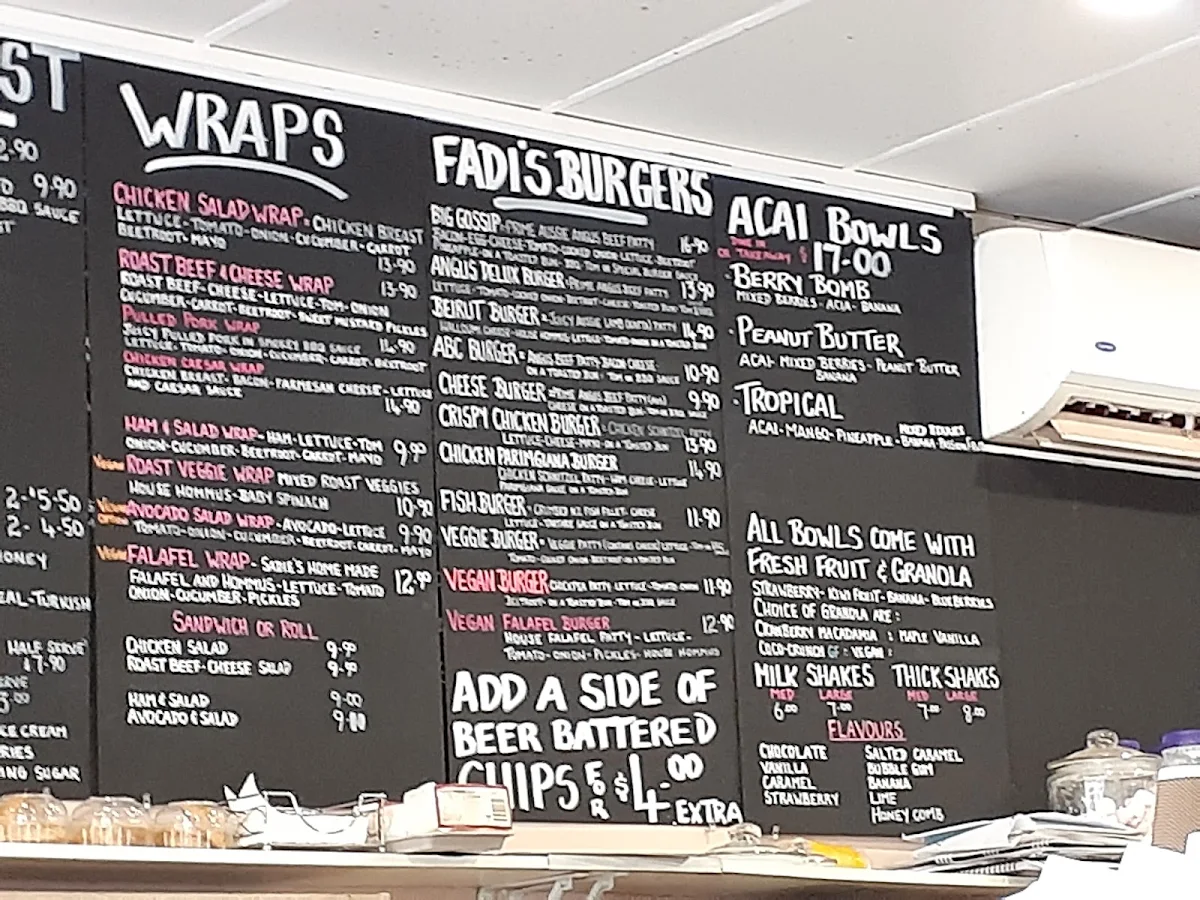 ST
2.90
9.90
BBQ SAUCE
2-$5-50
2- 4-50
HONEY
TURKISH
HALF SERVE
$7-90
ICE CREAM
SUGAR
WRAPS
CHICKEN SALAD WRAP - CHICKEN BREAST
LETTUCE-TOMATO-ONION-CUCUMBER-CARROT
BEETROOT-MAYO 13-90
ROAST BEEF & CHEESE WRAP 13-90
ROAST BEEF-CHEESE-LETTUCE-TOM-ONION
CUCUMBER-CARROT-BEETROOT-SWEET MUSTARD PICKLES
PULLED PORK WRAP
JUICY PULLED PORK IN SMOKEY BBQ SAUCE 14-90
LETTUCE-TOMATO-ONION-CUCUMBER-CARROT-BEETROOT
CHICKEN CAESAR WRAP
CHICKEN BREAST-BACON-PARMESAN CHEESE-LETTUCE
AND CAESAR SAUCE 14-90
HAM & SALAD WRAP-HAM-LETTUCE-TOM
ONION-CUCUMBER-BEETROOT-CARROT-MAYO 9-90
VEGAN ROAST VEGGIE WRAP MIXED ROAST VEGGIES
HOUSE HOMMUS-BABY SPINACH 10-90
VEGAN OPTION AVOCADO SALAD WRAP-AVOCADO-LETTUCE
TOMATO-ONION-CUCUMBER-BEETROOT-CARROT-MAYO 9-90
VEGAN FALAFEL WRAP- SADIE'S HOME MADE
FALAFEL AND HOMMUS-LETTUCE-TOMATO 12-90
ONION-CUCUMBER-PICKLES
SANDWICH OR ROLL
CHICKEN SALAD 9-90
ROAST BEEF-CHEESE SALAD 9-90
HAM & SALAD 9-00
AVOCADO & SALAD 9-00
FADI'S BURGERS
BIG GOSSIP-PRIME AUSSIE ANGUS BEEF PATTY 16-90
BACON-EGG-CHEESE-TOMATO-COOKED ONION-LETTUCE-BEETROOT
PINEAPPLE-ON A TOASTED BUN-BBQ-TOM OR SPECIAL BURGER SAUCE
ANGUS DELUX BURGER-PRIME ANGUS BEEF PATTY 13-90
BEIRUT BURGER - JUICY AUSSIE LAMB PATTY 14-90
ABC BURGER - ANGUS BEEF PATTY-BACON-CHEESE
ON A TOASTED BUN-TOM OR BBQ SAUCE 10-90
CHEESE BURGER -PRIME ANGUS BEEF PATTY 9-90
CHEESE ON A TOASTED BUN-TOM OR BBQ SAUCE
CRISPY CHICKEN BURGER - CHICKEN SCHNITZEL PATTY
LETTUCE-CHEESE-MAYO-ON A TOASTED BUN 13-90
CHICKEN PARIMGIANA BURGER 14-90
CHICKEN SCHNITZEL PATTY-HAM-CHEESE-LETTUCE
PARMIGIANA SAUCE ON A TOASTED BUN
FISH BURGER - CRUMBED FISH FILLET-CHEESE
LETTUCE-TARTARE SAUCE ON A TOASTED BUN 11-90
VEGGIE BURGER - VEGGIE PATTY
VEGAN BURGER CHICK'EN PATTY-LETTUCE-TOMATO-ONION 11-90
BEETROOT-ON A TOASTED BUN-TOM OR BBQ SAUCE
VEGAN FALAFEL BURGER 12-90
HOUSE FALAFEL PATTY-LETTUCE-
TOMATO-ONION-PICKLES-HOUSE HOMMUS
ADD A SIDE OF
BEER BATTERED
CHIPS FOR $4.00
EXTRA
ACAI BOWLS
DINE IN
OR TAKEAWAY $ 17-00
·BERRY BOMB
MIXED BERRIES-ACIA-BANANA
·PEANUT BUTTER
ACAI-MIXED BERRIES-PEANUT BUTTER
BANANA
·TROPICAL
ACAI-MANGO-PINEAPPLE-BANANA
MIXED BERRIES
ALL BOWLS COME WITH
FRESH FRUIT & GRANOLA
STRAWBERRY-KIWI FRUIT-BANANA-BLUEBERRIES
CHOICE OF GRANOLA ARE:
CRANBERRY MACADAMIA : MAPLE VANILLA
COCO-CRUNCH GF : VEGAN :
MILK SHAKES THICK SHAKES
MED LARGE MED LARGE
6.00 7.00 7.00 8.00
FLAVOURS
CHOCOLATE SALTED CARAMEL
VANILLA BUBBLE GUM
CARAMEL BANANA
STRAWBERRY LIME
HONEY COMB